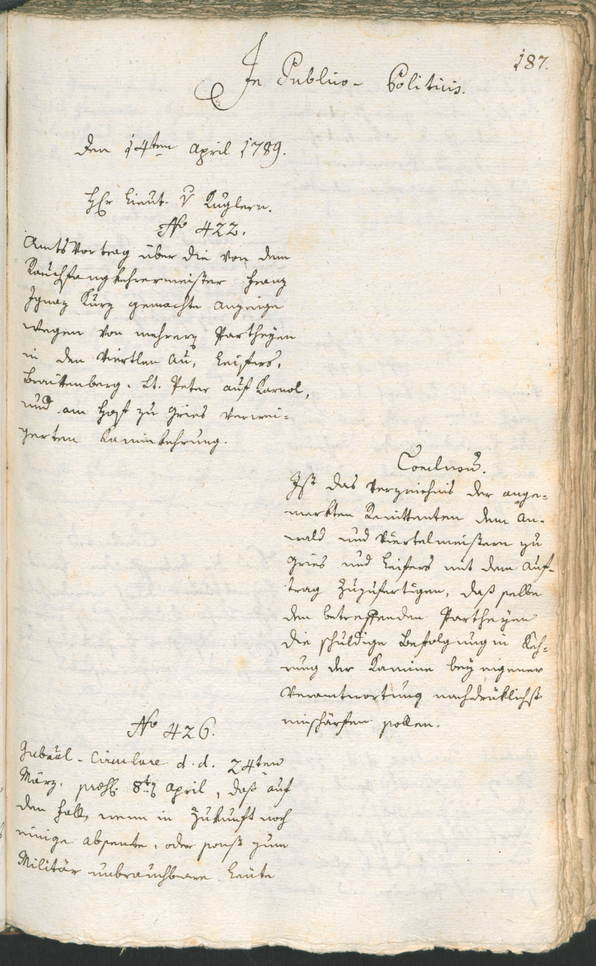 187.
In Publico-Politicis.
Den 14ten April 1789.
Hr Lieut. v Kuglern.
No 422.
Amts Vortrag über die von dem
Rauchfangkehrermeister Franz
Ignaz Kurz gemachte Anzeige
wegen von mehrern Partheyen
in den Viertlen Au, Leifers,
Breitenberg, St. Peter auf Karnol,
und am Hopf zu Gries verwei-
gerten Kaminkehrung.
Conclusum.
Ist das Verzeichnis der ange-
merkten Renittenten dem An-
wald und Viertelmeistern zu
Gries und Leifers mit dem Auf-
trag zuzufertigen, daß selbe
den betreffenden Partheyen
die schuldige Befolgung in Keh-
rung der Kamine bey eigener
Verantwortung nachdrüklichst
einschärfen sollen.
No 426.
Gubrâl-Circulare d. d. 24ten
März. 8ten April, daß auf
den Fall, wenn in Zukunft noch
einige absente, oder sonst zum
Militär unbrauchbare Leute